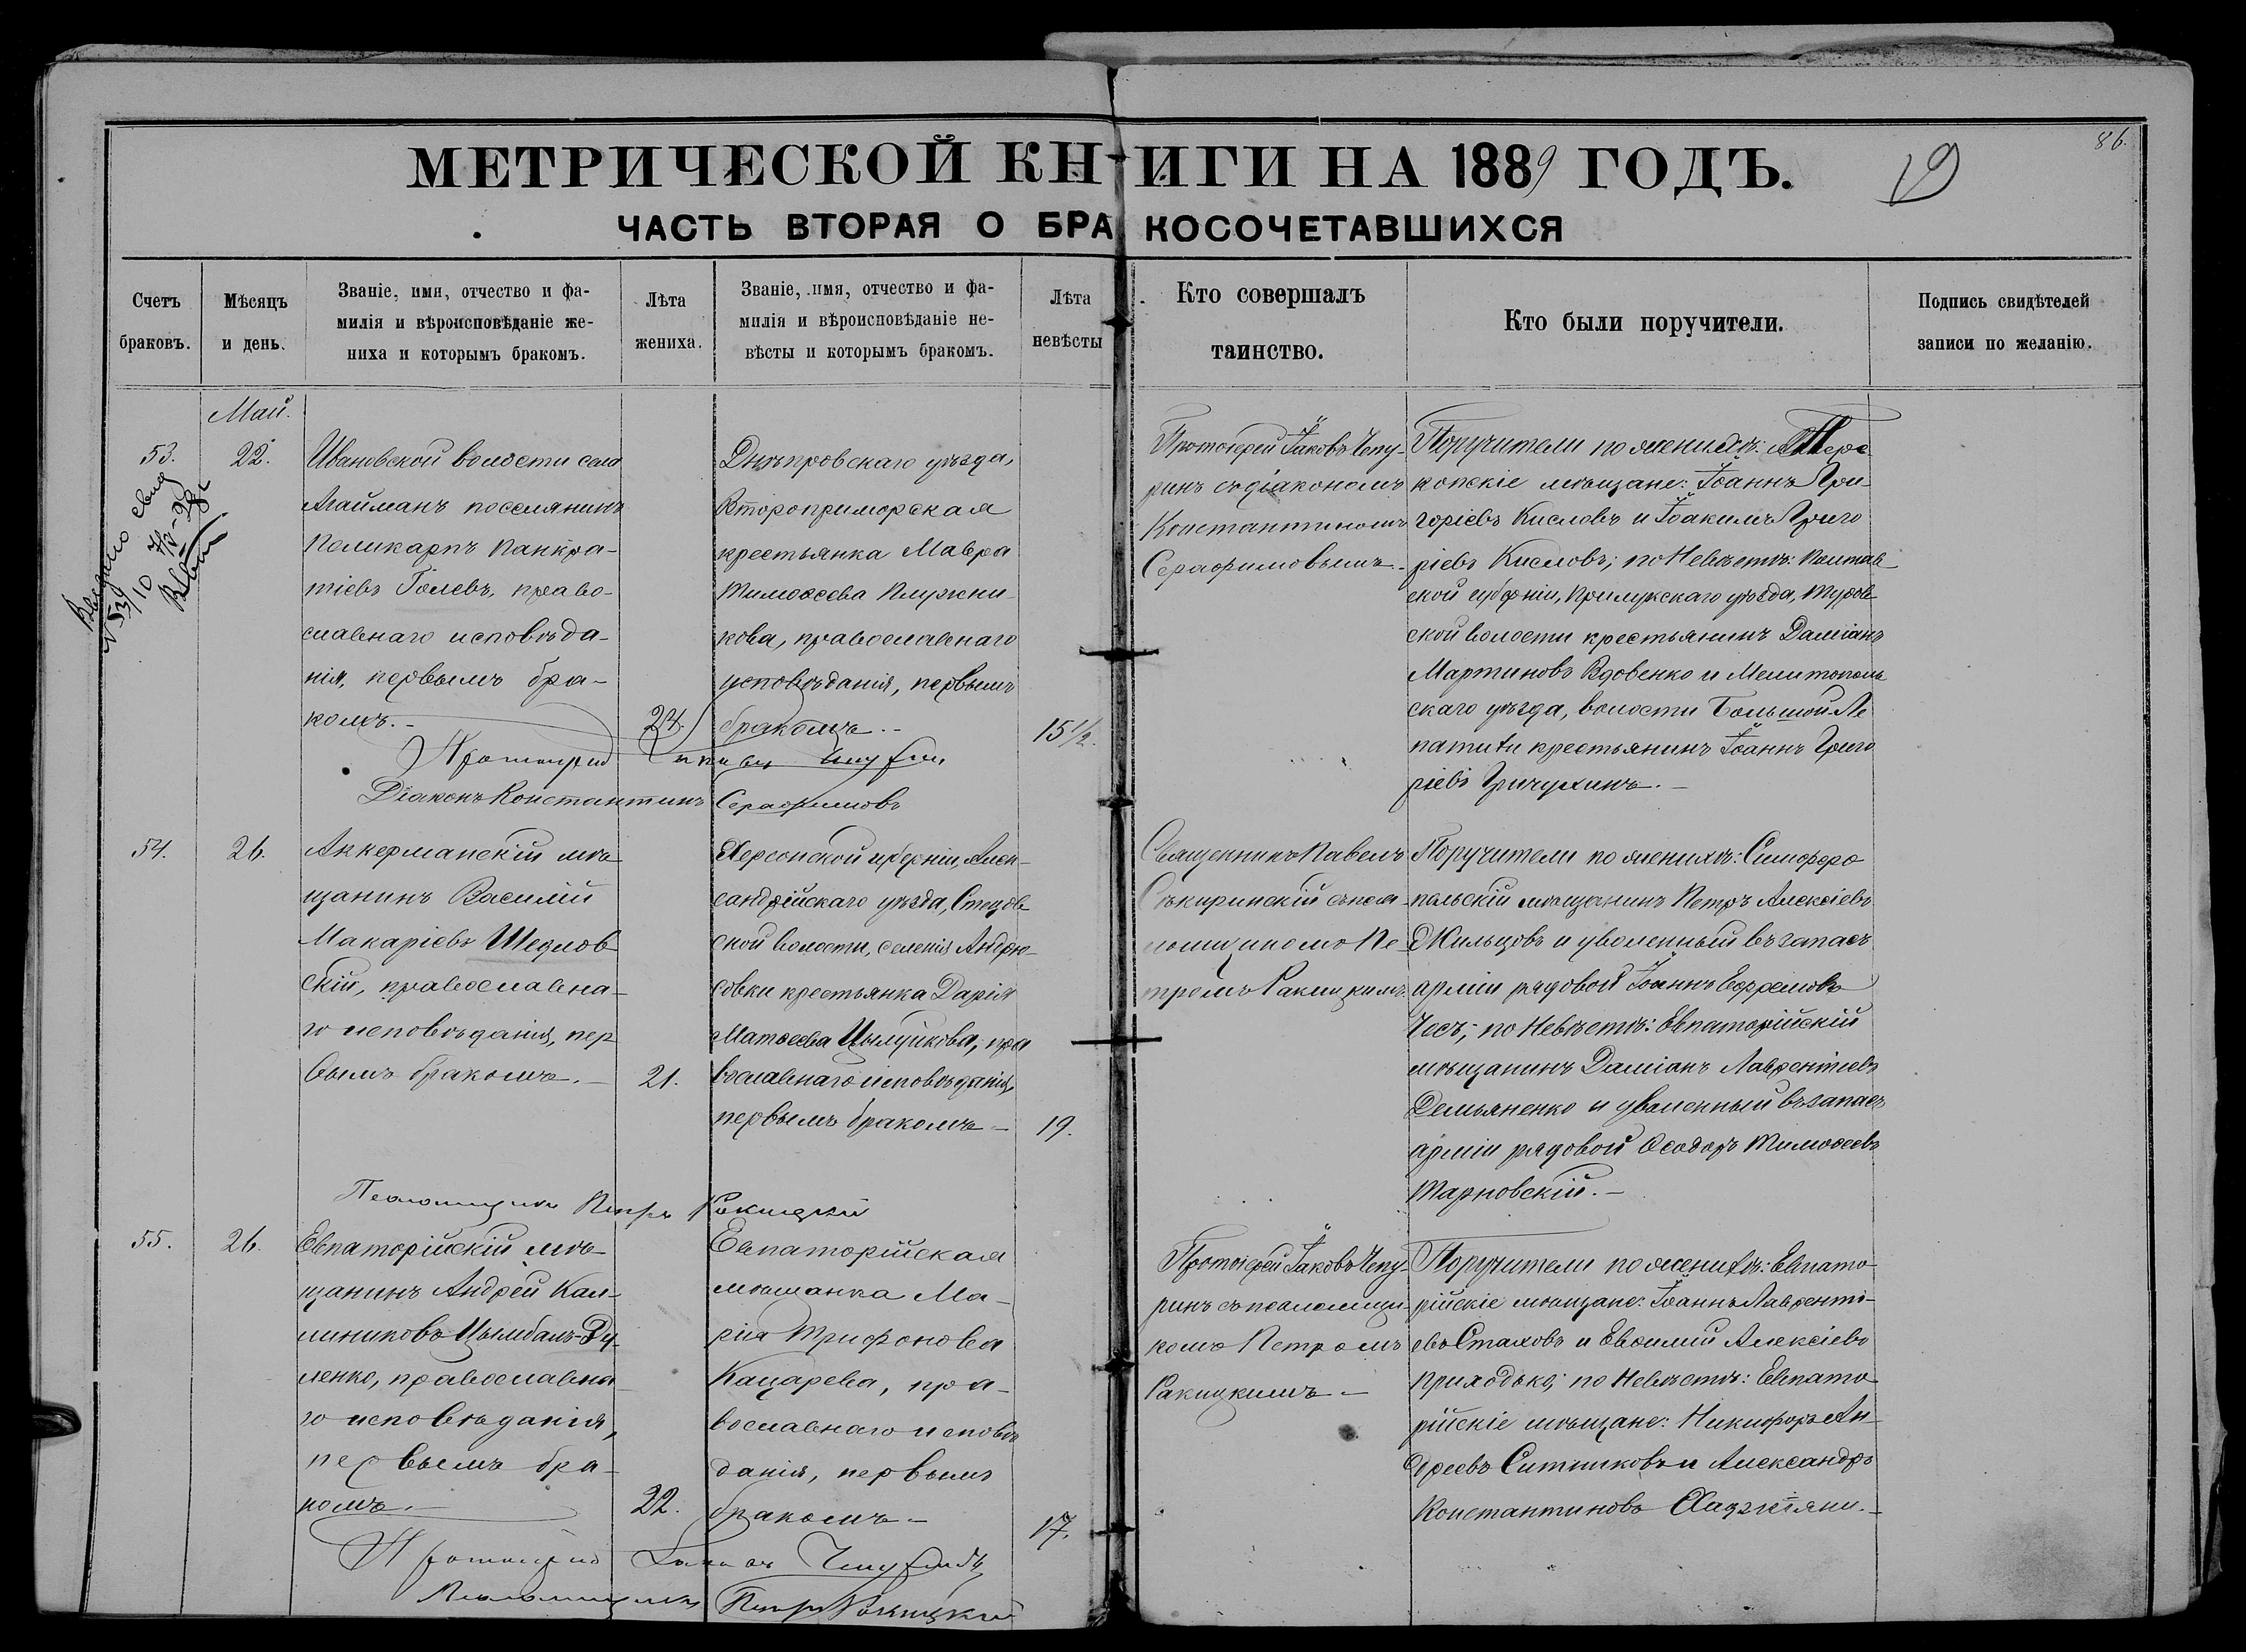 86.
МЕТРИЧЕСКОЙ КНИГИ НА 1889 ГОДЪ.
19
ЧАСТЬ ВТОРАЯ О БРАКОСОЧЕТАВШИХСЯ
Счетъ
браковъ.
Мѣсяцъ
и день.
Званіе, имя, отчество и фа-
милія и вѣроисповѣданіе же-
ниха и которымъ бракомъ.
Лѣта
жениха.
Званіе, имя, отчество и фа-
милія и вѣроисповѣданіе не-
вѣсты и которымъ бракомъ.
Лѣта
невѣсты
Кто совершалъ
таинство.
Кто были поручители.
Подпись свидѣтелей
записи по желанію.
Май.
53.
22.
Ивановской волости села
Агайманъ поселянинъ
Поликарпъ Панкра-
тіевъ Голевъ, право-
славнаго исповѣда-
нія, первымъ бра-
комъ.-
24.
Днѣпровскаго уѣзда,
Второприморская
крестьянка Мавра
Тимоѳеева Плужни-
кова, православнаго
исповѣданія, первымъ
бракомъ.-
15 1/2.
Протоіерей Іаковъ Чепу-
ринъ съ діакономъ
Константиномъ
Серафимовымъ.
Поручители по женихѣ: Пере
копскіе мѣщане: Іоаннъ Гри-
горіевъ Кисловъ и Іоакимъ Григо
ріевъ Кисловъ; по Невѣстѣ: Полтав-
ской губерніи, Прилукскаго уѣзда, Туров-
ской волости крестьянинъ Даміанъ
Мартиновъ Вдовенко и Мелитополь
скаго уѣзда, волости Большой Ле
патихи крестьянинъ Іоаннъ Григо
ріевъ Гричухинъ.-
Протоіерей Іаковъ Чепурин
Діаконъ Константинъ Серафимовъ
54.
26.
Аккерманскій мѣ-
щанинъ Василій
Макаріевъ Шедлов-
скій, православна-
го исповѣданія, пер
вымъ бракомъ.-
21.
Херсонской губерніи, Алек-
сандрійскаго уѣзда, Стецов-
ской волости, селенія Андру-
совки крестьянка Дарія
Матѳеева Цымуйкова, пра
вославнаго исповѣданія,
первымъ бракомъ-
19.
Священникъ Павелъ
Сѣкиринскій съ псал-
мощикомъ Пе-
тромъ Ракицкимъ.
Поручители по женихѣ: Симферо
польскій мѣщанинъ Петръ Алексіевъ
Жильцовъ и уволенный въ запасъ
арміи рядовой Іоаннъ Ефремовъ
Чесъ; по Невѣстѣ: Евпаторійскій
мѣщанинъ Даміанъ Лаврентіевъ
Демьяненко и уволенный въ запасъ
арміи рядовой Ѳеодоръ Тимоѳеевъ
Тарновскій.-
Псаломщикъ Петръ Ракицкій
55.
26.
Евпаторійскій мѣ-
щанинъ Андрей Кал-
линиковъ Цымбалъ-Ду-
ленко, православна-
го исповѣданія,
первымъ бра-
комъ.-
22.
Евпаторійская
мѣщанка Ма-
рія Трифонова
Кацарева, пра-
вославнаго исповѣ
данія, первымъ
бракомъ-
17.
Протоіерей Іаковъ Чепу-
ринъ съ псаломщи-
комъ Петромъ
Ракицкимъ-
Поручители по женихѣ: Евпато-
рійскіе мѣщане: Іоаннъ Лавренті-
евъ Стаховъ и Евѳимій Алексіевъ
Приходько; по Невѣстѣ: Евпато
рійскіе мѣщане: Никифоръ Ан-
дреевъ Ситниковъ и Александръ
Константиновъ Хаджіяни.-
Протоіерей Іаковъ Чепуринъ
Псаломщикъ Петръ Ракицкій